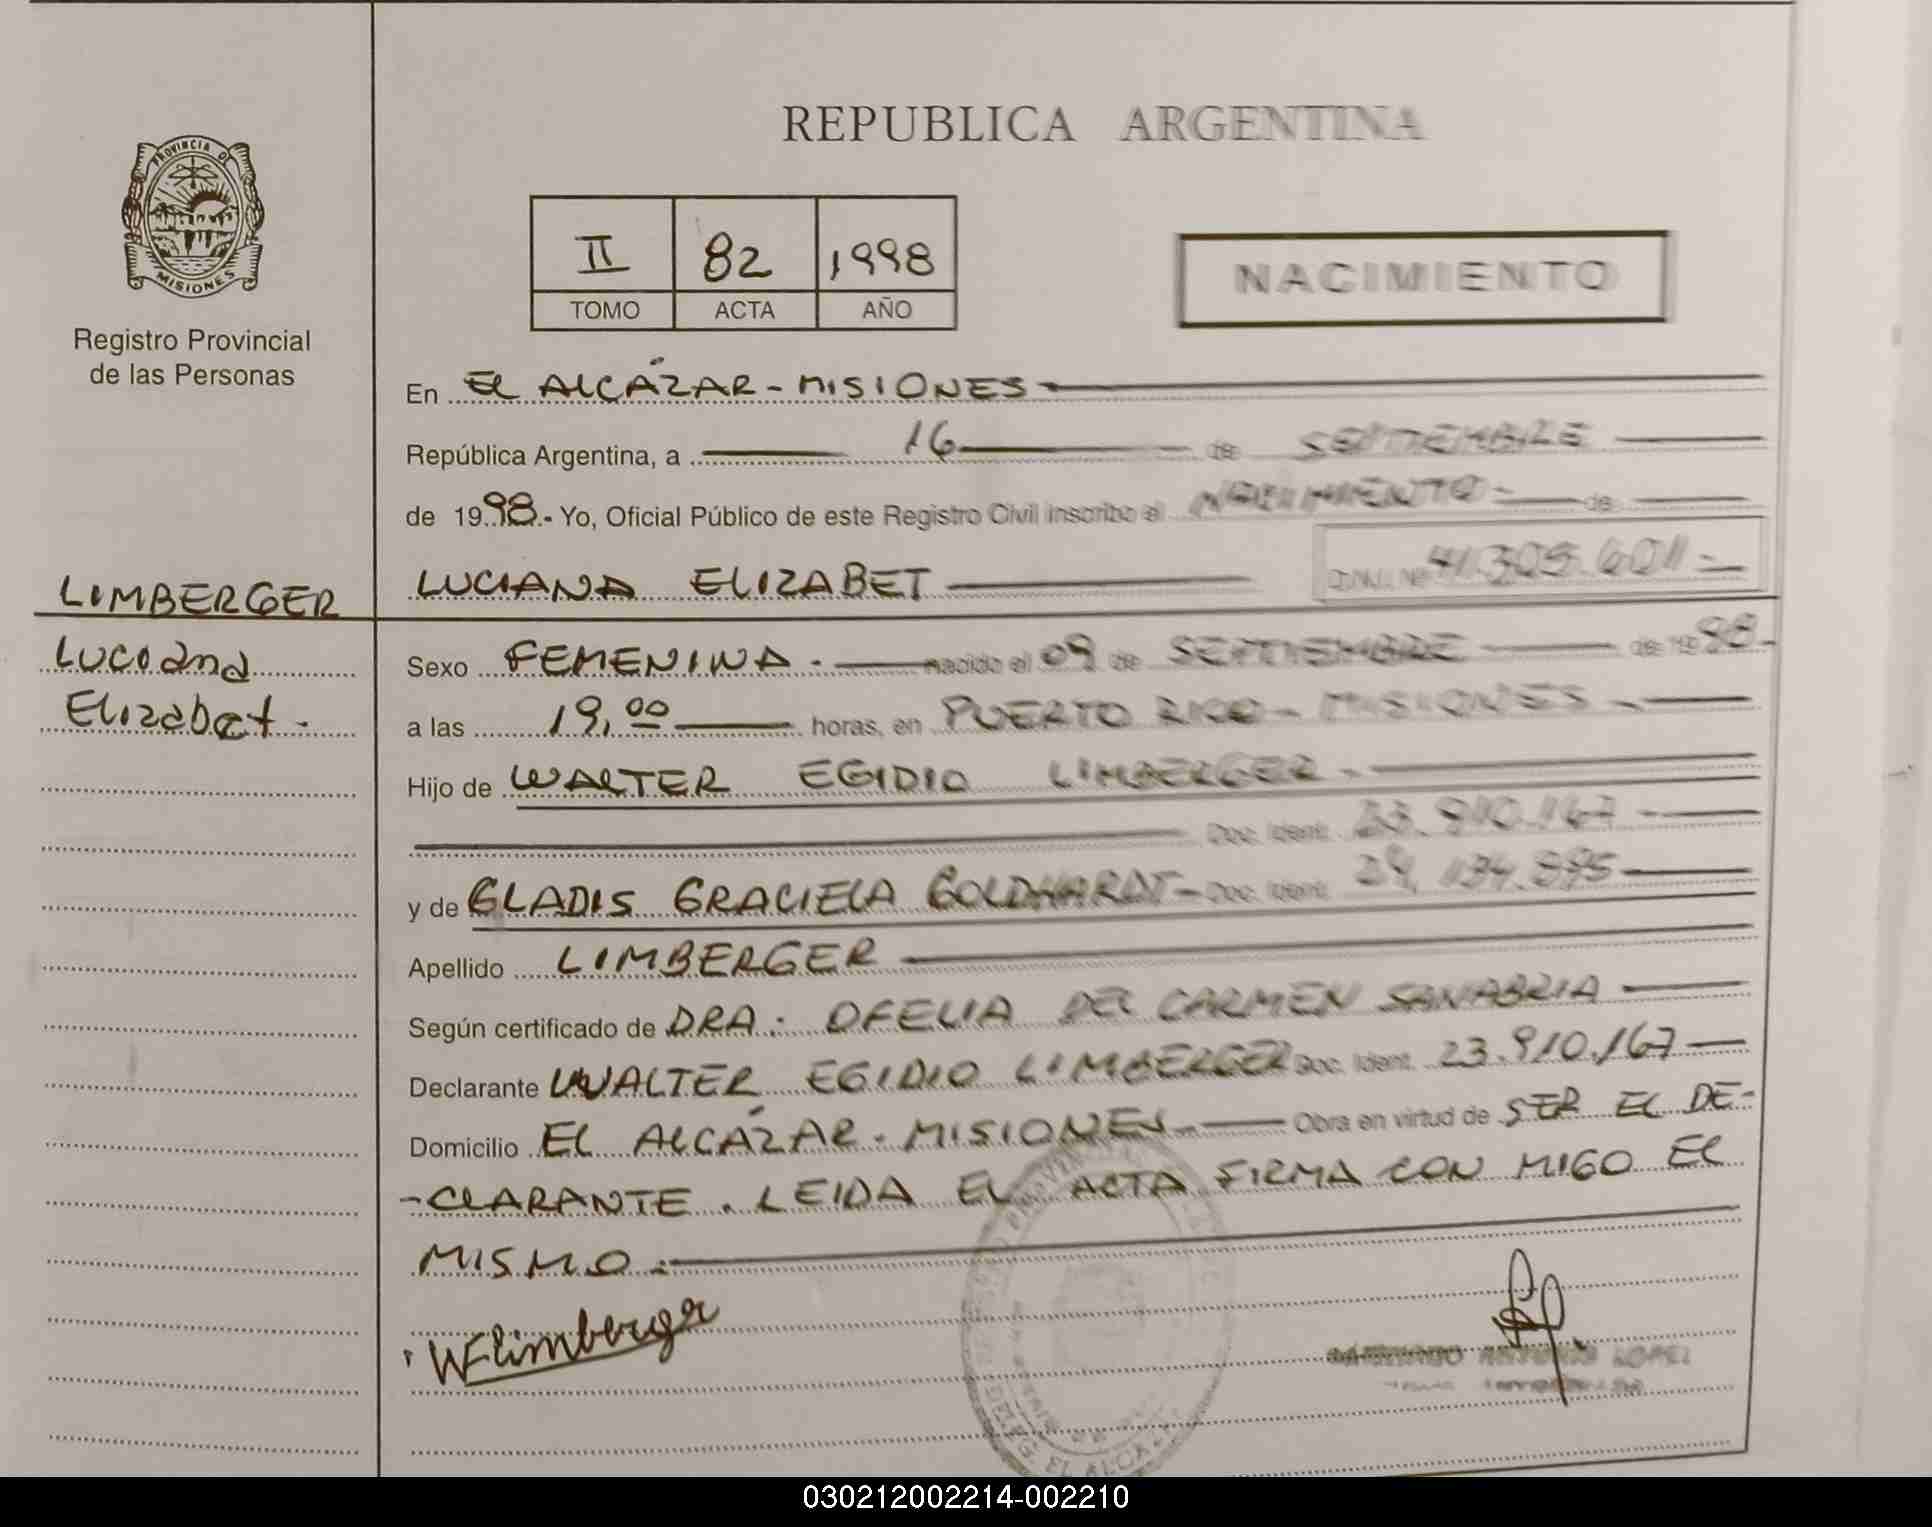 PROVINCIA DE
MISIONES
Registro Provincial
de las Personas
LIMBERGER
Luciana
Elizabet.-
REPUBLICA ARGENTINA
II 82 1998
TOMO ACTA AÑO
NACIMIENTO
En EL ALCÁZAR - MISIONES
República Argentina, a 16 de SEPTIEMBRE
de 1998.- Yo, Oficial Público de este Registro Civil inscribo el NACIMIENTO - de
LUCIANA ELIZABET D.N.I. Nº 41.305.601-
Sexo FEMENINA.- nacido el 09 de SEPTIEMBRE de 1998.-
a las 19,00 horas, en PUERTO RICO - MISIONES -
Hijo de WALTER EGIDIO LIMBERGER -
Doc. Ident. 23.910.167 -
y de GLADIS GRACIELA GOLDHARDT - Doc. Ident.
Apellido LIMBERGER
Según certificado de DRA. OFELIA DEL CARMEN SANABRIA
Declarante WALTER EGIDIO LIMBERGER Doc. Ident. 23.910.167
Domicilio EL ALCÁZAR - MISIONES - Obra en virtud de SER EL DE-
-CLARANTE. LEIDA EL ACTA FIRMA CON MIGO EL
MISMO.-
WElimberger
LOPEZ
DELEG. EL ALCAZAR
030212002214-002210